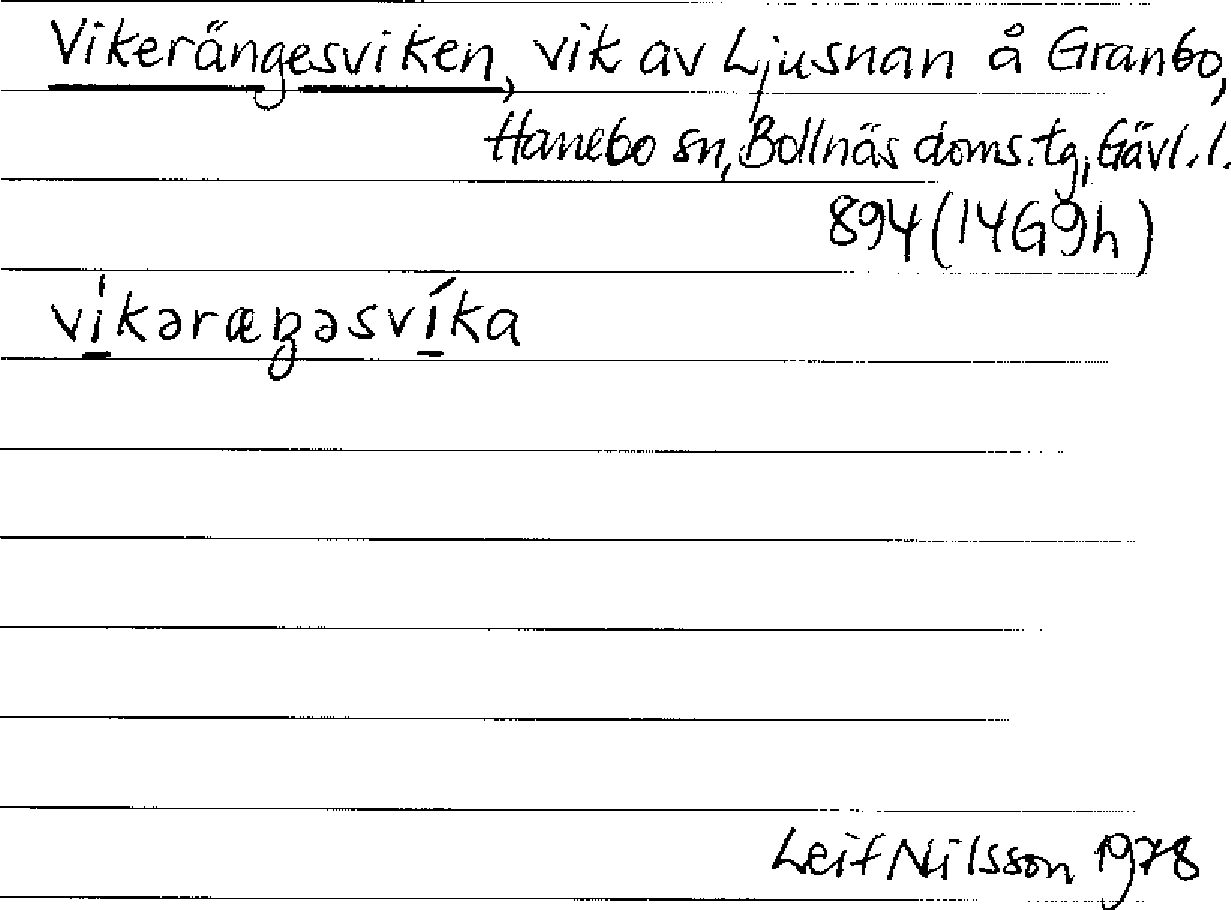 Vikerängesviken, vik av Ljusnan å Granbo,
Hanebo sn, Bollnäs doms.tg, Gävl.l.
894 (14G9h)
vi̲kəræŋəsví̲ka
Leif Nilsson 1978